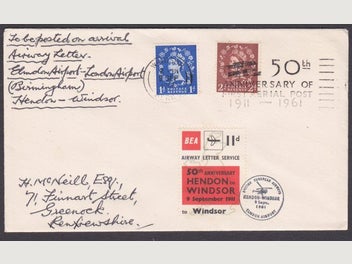 To be posted on arrival
Airway Letter.
Elmdon Airport - London Airport
(Birmingham)
Hendon - Windsor.
50th
ANNIVERSARY OF
AERIAL POST
1911 — 1961
BEA
11d
AIRWAY LETTER SERVICE
50th ANNIVERSARY
HENDON to
WINDSOR
9 September 1911
to Windsor
BRITISH EUROPEAN AIRWAYS
HENDON-WINDSOR
9 Sept.
1961
LONDON AIRPORT
H. McNeill, Esq.,
71, Finnart Street,
Greenock.
Renfrewshire.